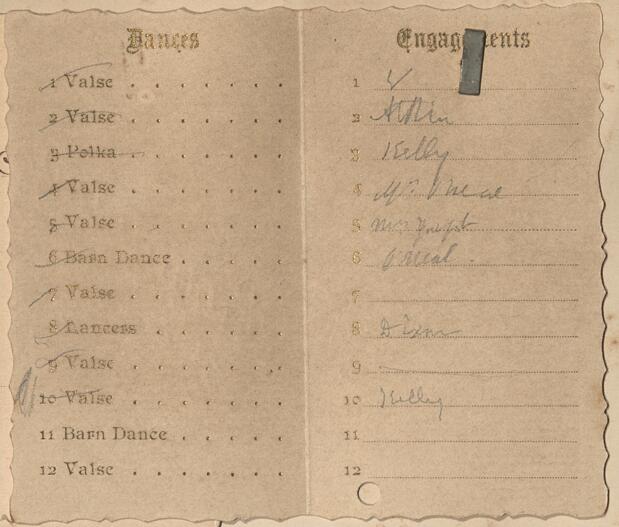 Dances
1 Valse
2 Valse
3 Polka
4 Valse
5 Valse
6 Barn Dance
7 Valse
8 Lancers
9 Valse
10 Valse
11 Barn Dance
12 Valse
Engag ents
1
2
3 Kelly
4 Mr
5
6 O'Neal
7
8 Dixon
9
10 Kelly
11
12